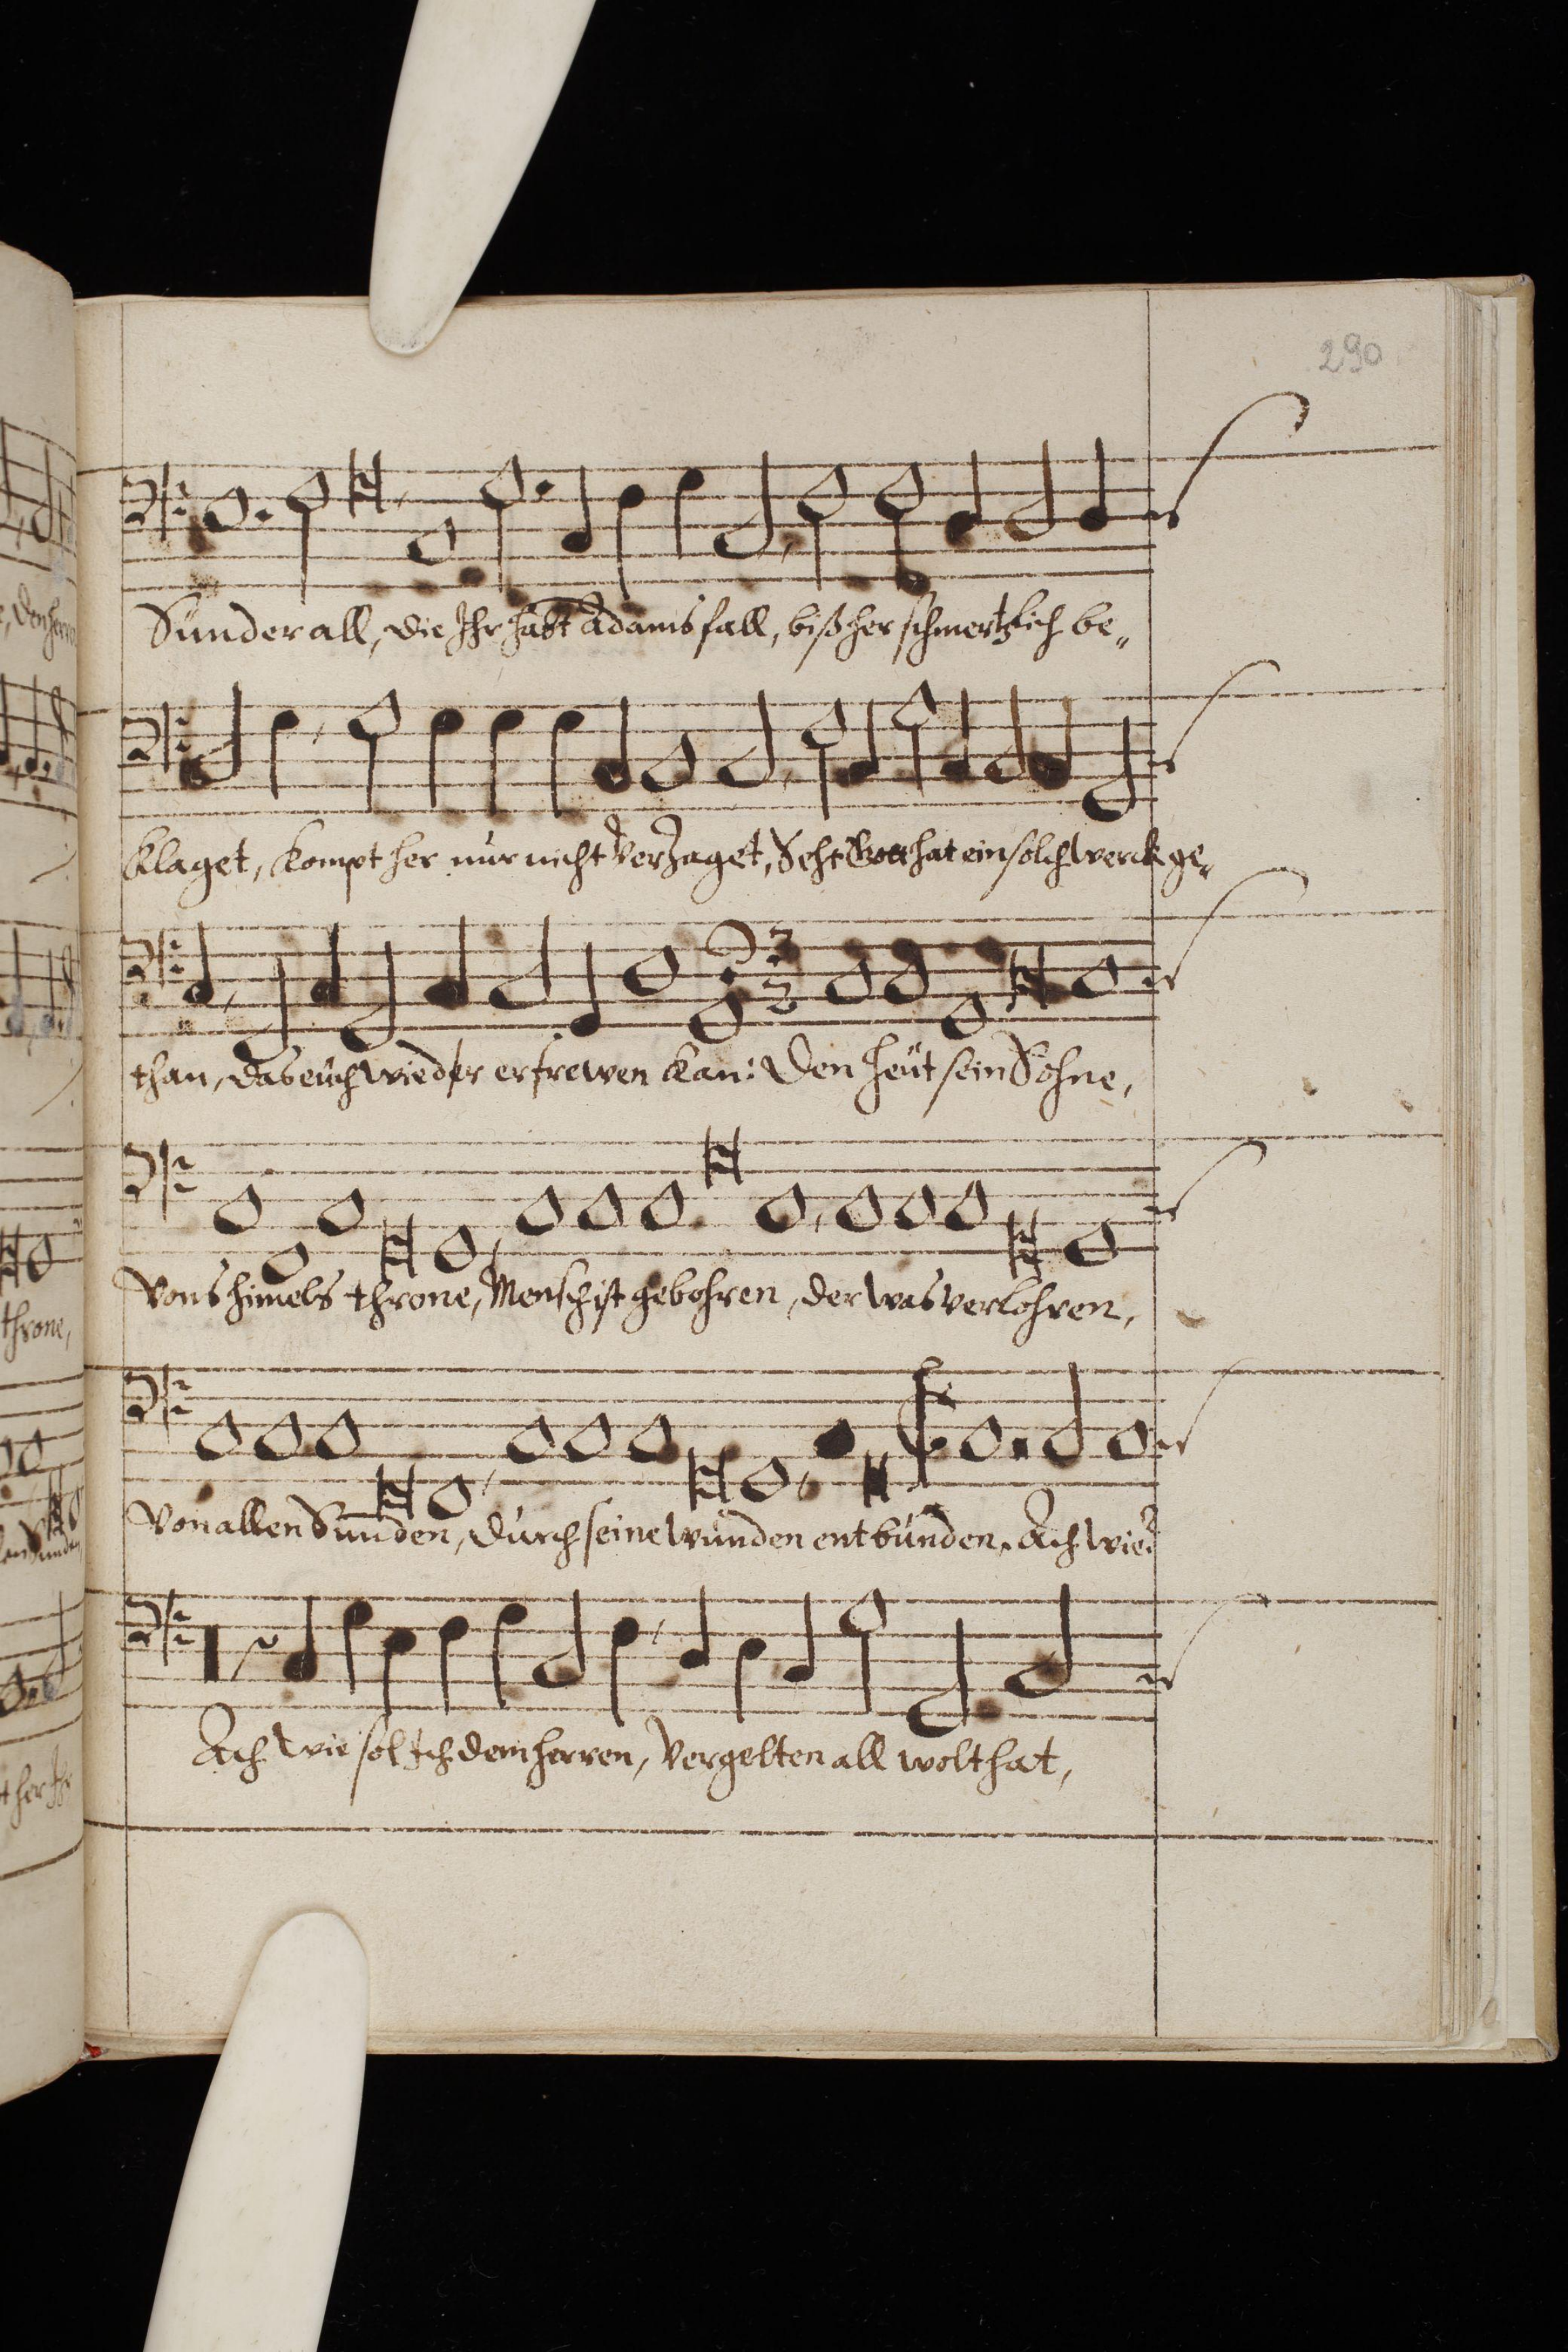 290
Sünder all, die Ihr habt Adams fall, bißher schmertzlich be„
klaget, kompt her nur nicht verzaget, Seht Gott hat ein solch werck ge„
than, das euch wieder erfrewen kan: Den heut sein Sohne,
Vons himels throne, Mensch ist gebohren, der was verlohren,
Von allen Sünden, durch seine wunden entbunden. Ach wie
Ach wie sol Ich dem herren, vergelten all wolthat,
throne,